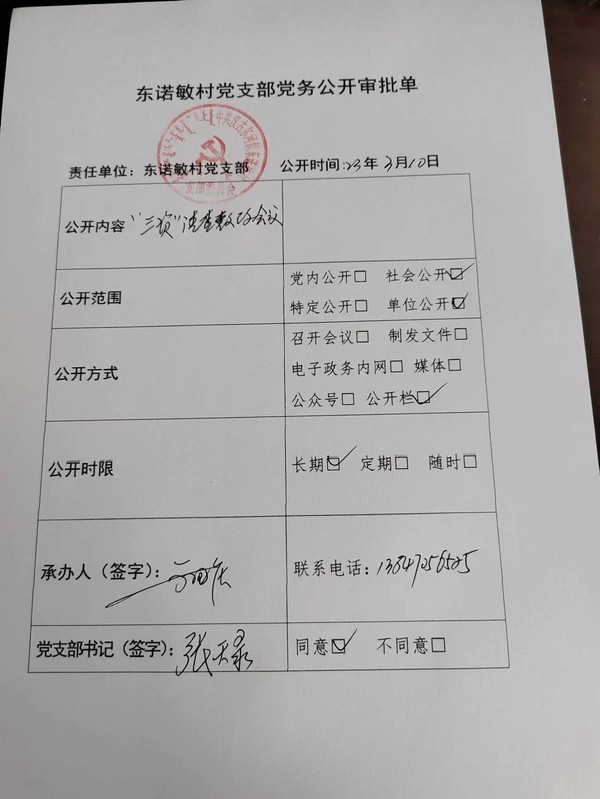 东诺敏村党支部党务公开审批单
责任单位：东诺敏村党支部 公开时间:23年3月10日
支部委员会
公开内容 "三资"清产核资会议
公开范围
党内公开□ 社会公开☑
特定公开□ 单位公开☑
公开方式
召开会议□ 制发文件□
电子政务内网□ 媒体□
公众号□ 公开栏☑
公开时限
长期☑ 定期□ 随时□
承办人（签字）：
联系电话：13847256525
党支部书记（签字）：张天录
同意☑ 不同意□